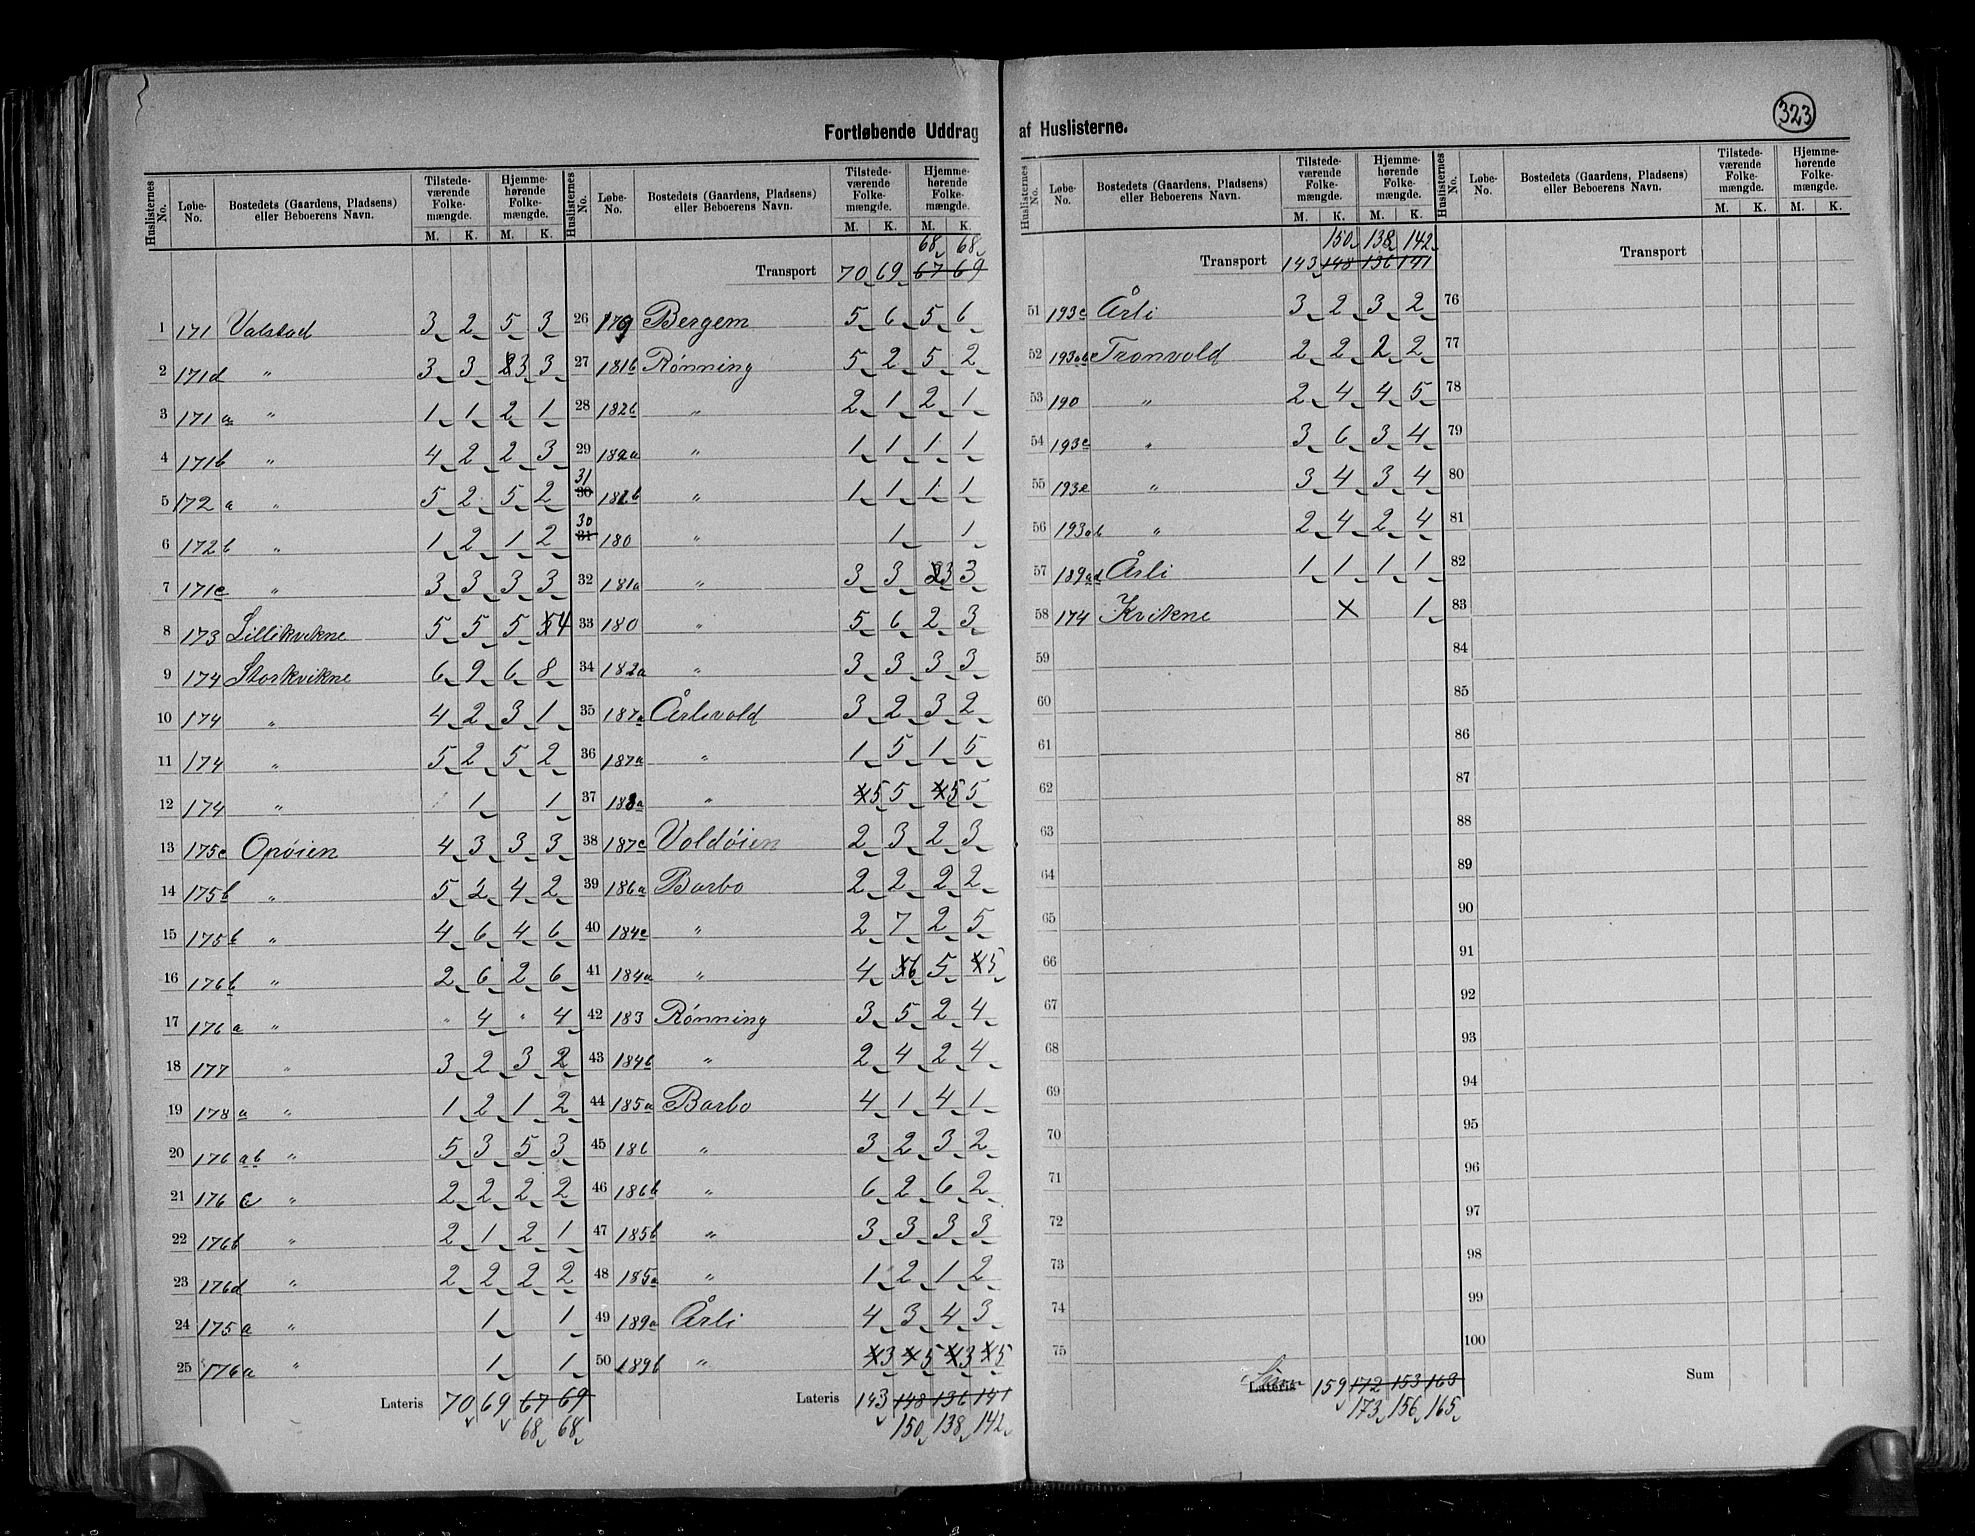 323
Fortløbende Uddrag af Huslisterne.
Huslisternes No. | Løbe-No. | Bostedets (Gaardens, Pladsens) eller Beboerens Navn. | Tilstedeværende Folkemængde. M. K. | Hjemmehørende Folkemængde. M. K.
1 171 Valstad 3 2 5 3
2 171d " 3 3 3 3
3 171a " 1 1 2 1
4 171b " 4 2 2 3
5 172a " 5 2 5 2
6 172b " 1 2 1 2
7 171c " 3 3 3 3
8 173 Lillikvikne 5 5 5 4
9 174 Storkvikne 6 9 6 8
10 174 " 4 2 3 1
11 174 " 5 2 5 2
12 174 " 1 1
13 175c Opøien 4 3 3 3
14 175b " 5 2 4 2
15 175b " 4 6 4 6
16 176b " 2 6 2 6
17 176a " " 4 " 4
18 177 " 3 2 3 2
19 178a " 1 2 1 2
20 176ab " 5 3 5 3
21 176c " 2 2 2 2
22 176b " 2 1 2 1
23 176d " 2 2 2 2
24 175a " 1 1
25 176a " 1 1
Lateris 70 69 67 69
68 68
Huslisternes No. | Løbe-No. | Bostedets (Gaardens, Pladsens) eller Beboerens Navn. | Tilstedeværende Folkemængde. M. K. | Hjemmehørende Folkemængde. M. K.
68 68
Transport 70 69 67 69
26 179 Bergem 5 6 5 6
27 181b Rønning 5 2 5 2
28 182b " 2 1 2 1
29 182a " 1 1 1 1
31 30 181b " 1 1 1 1
30 31 180 " 1 1
32 181a " 3 3 3 3
33 180 " 5 6 2 3
34 182a " 3 3 3 3
35 187a Årlivold 3 2 3 2
36 187a " 1 5 1 5
37 188a " 4 5 5 4 5 5
38 187c Voldøien 2 3 2 3
39 186a Barbo 2 2 2 2
40 184c " 2 7 2 5
41 184a " 4 5 6 5 4 5
42 183 Rønning 3 5 2 4
43 184b " 2 4 2 4
44 185a Barbo 4 1 4 1
45 186 " 3 2 3 2
46 186b " 6 2 6 2
47 185b " 3 3 3 3
48 185a " 1 2 1 2
49 189a Årli 4 3 4 3
50 189b " 3 5 3 5
Lateris 143 148 136 141
150 138 142
Huslisternes No. | Løbe-No. | Bostedets (Gaardens, Pladsens) eller Beboerens Navn. | Tilstedeværende Folkemængde. M. K. | Hjemmehørende Folkemængde. M. K.
150 138 142
Transport 143 148 136 141
51 193c Årli 3 2 3 2
52 193abc Tronvold 2 2 2 2
53 190 " 2 4 4 5
54 193c " 3 6 3 4
55 193c " 3 4 3 4
56 193ab " 2 4 2 4
57 189ad Årli 1 1 1 1
58 174 Kvikne × 1
59
60
61
62
63
64
65
66
67
68
69
70
71
72
73
74
75
Sum
Lateris 159 172 153 163
173 156 165
Huslisternes No. | Løbe-No. | Bostedets (Gaardens, Pladsens) eller Beboerens Navn. | Tilstedeværende Folkemængde. M. K. | Hjemmehørende Folkemængde. M. K.
Transport
76
77
78
79
80
81
82
83
84
85
86
87
88
89
90
91
92
93
94
95
96
97
98
99
100
Sum